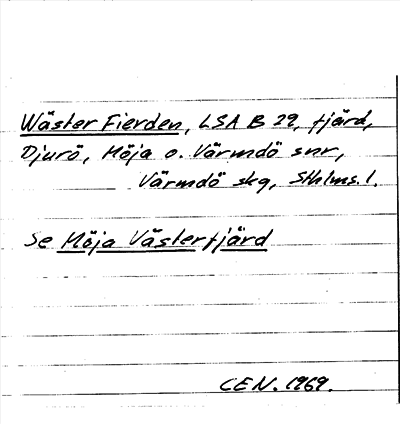 Wäster Fierden, LSA B 29, fjärd,
Djurö, Möja o. Värmdö snr,
Värmdö skg, Sthlms. l.
Se Möja Västerfjärd
CEN. 1969.